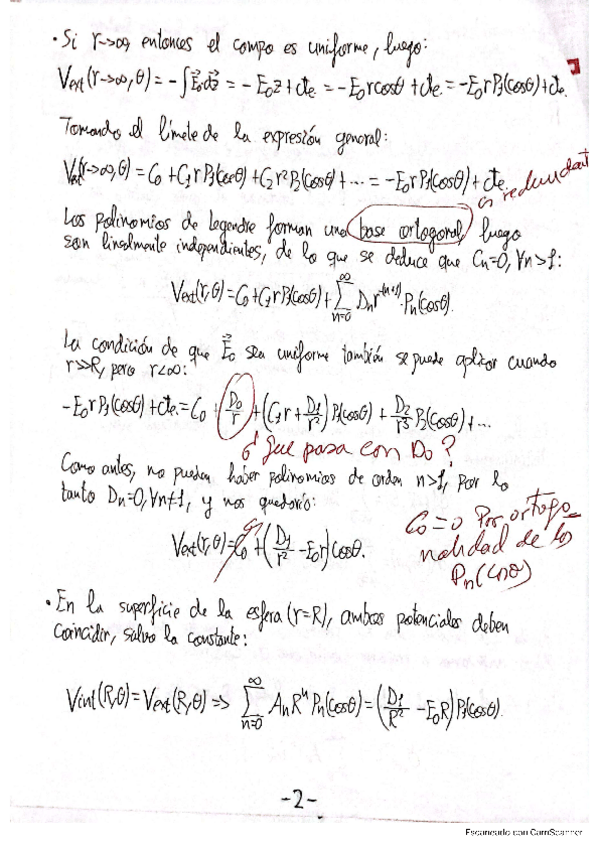 · Si r→∞, entonces el campo es uniforme, luego:
Vext(r→∞,θ) = -∫E⃗₀dz⃗ = -E₀z + cte. = -E₀rcosθ + cte. = -E₀rP₁(cosθ) + cte.
Tomando el límite de la expresión general:
Vext(r→∞,θ) = C₀ + C₁rP₁(cosθ) + C₂r²P₂(cosθ) + ... = -E₀rP₁(cosθ) + cte
es redundante
Los polinomios de Legendre forman una base ortogonal, luego
son linealmente independientes, de lo que se deduce que Cn=0, ∀n>1:
Vext(r,θ) = C₀ + C₁rP₁(cosθ) + ∑_{n=0}^{∞} Dn r^{-(n+1)}·Pn(cosθ).
La condición de que E⃗₀ sea uniforme también se puede aplicar cuando
r>>R, pero r<∞:
-E₀rP₁(cosθ) + cte. = C₀ + D₀/r + (C₁r + D₁/r²)P₁(cosθ) + D₂/r³ P₂(cosθ) + ...
¿Que pasa con D₀?
Como antes, no pueden haber polinomios de orden n>1, por lo
tanto Dn=0, ∀n≠1, y nos quedaría:
C₀=0 Por ortogo-
nalidad de los
Pn(cosθ)
Vext(r,θ) = C₀ + (D₁/r² - E₀r)cosθ.
· En la superficie de la esfera (r=R), ambos potenciales deben
coincidir, salvo la constante:
Vint(R,θ) = Vext(R,θ) => ∑_{n=0}^{∞} AnRⁿPn(cosθ) = (D₁/R² - E₀R)P₁(cosθ).
-2-
Escaneado con CamScanner